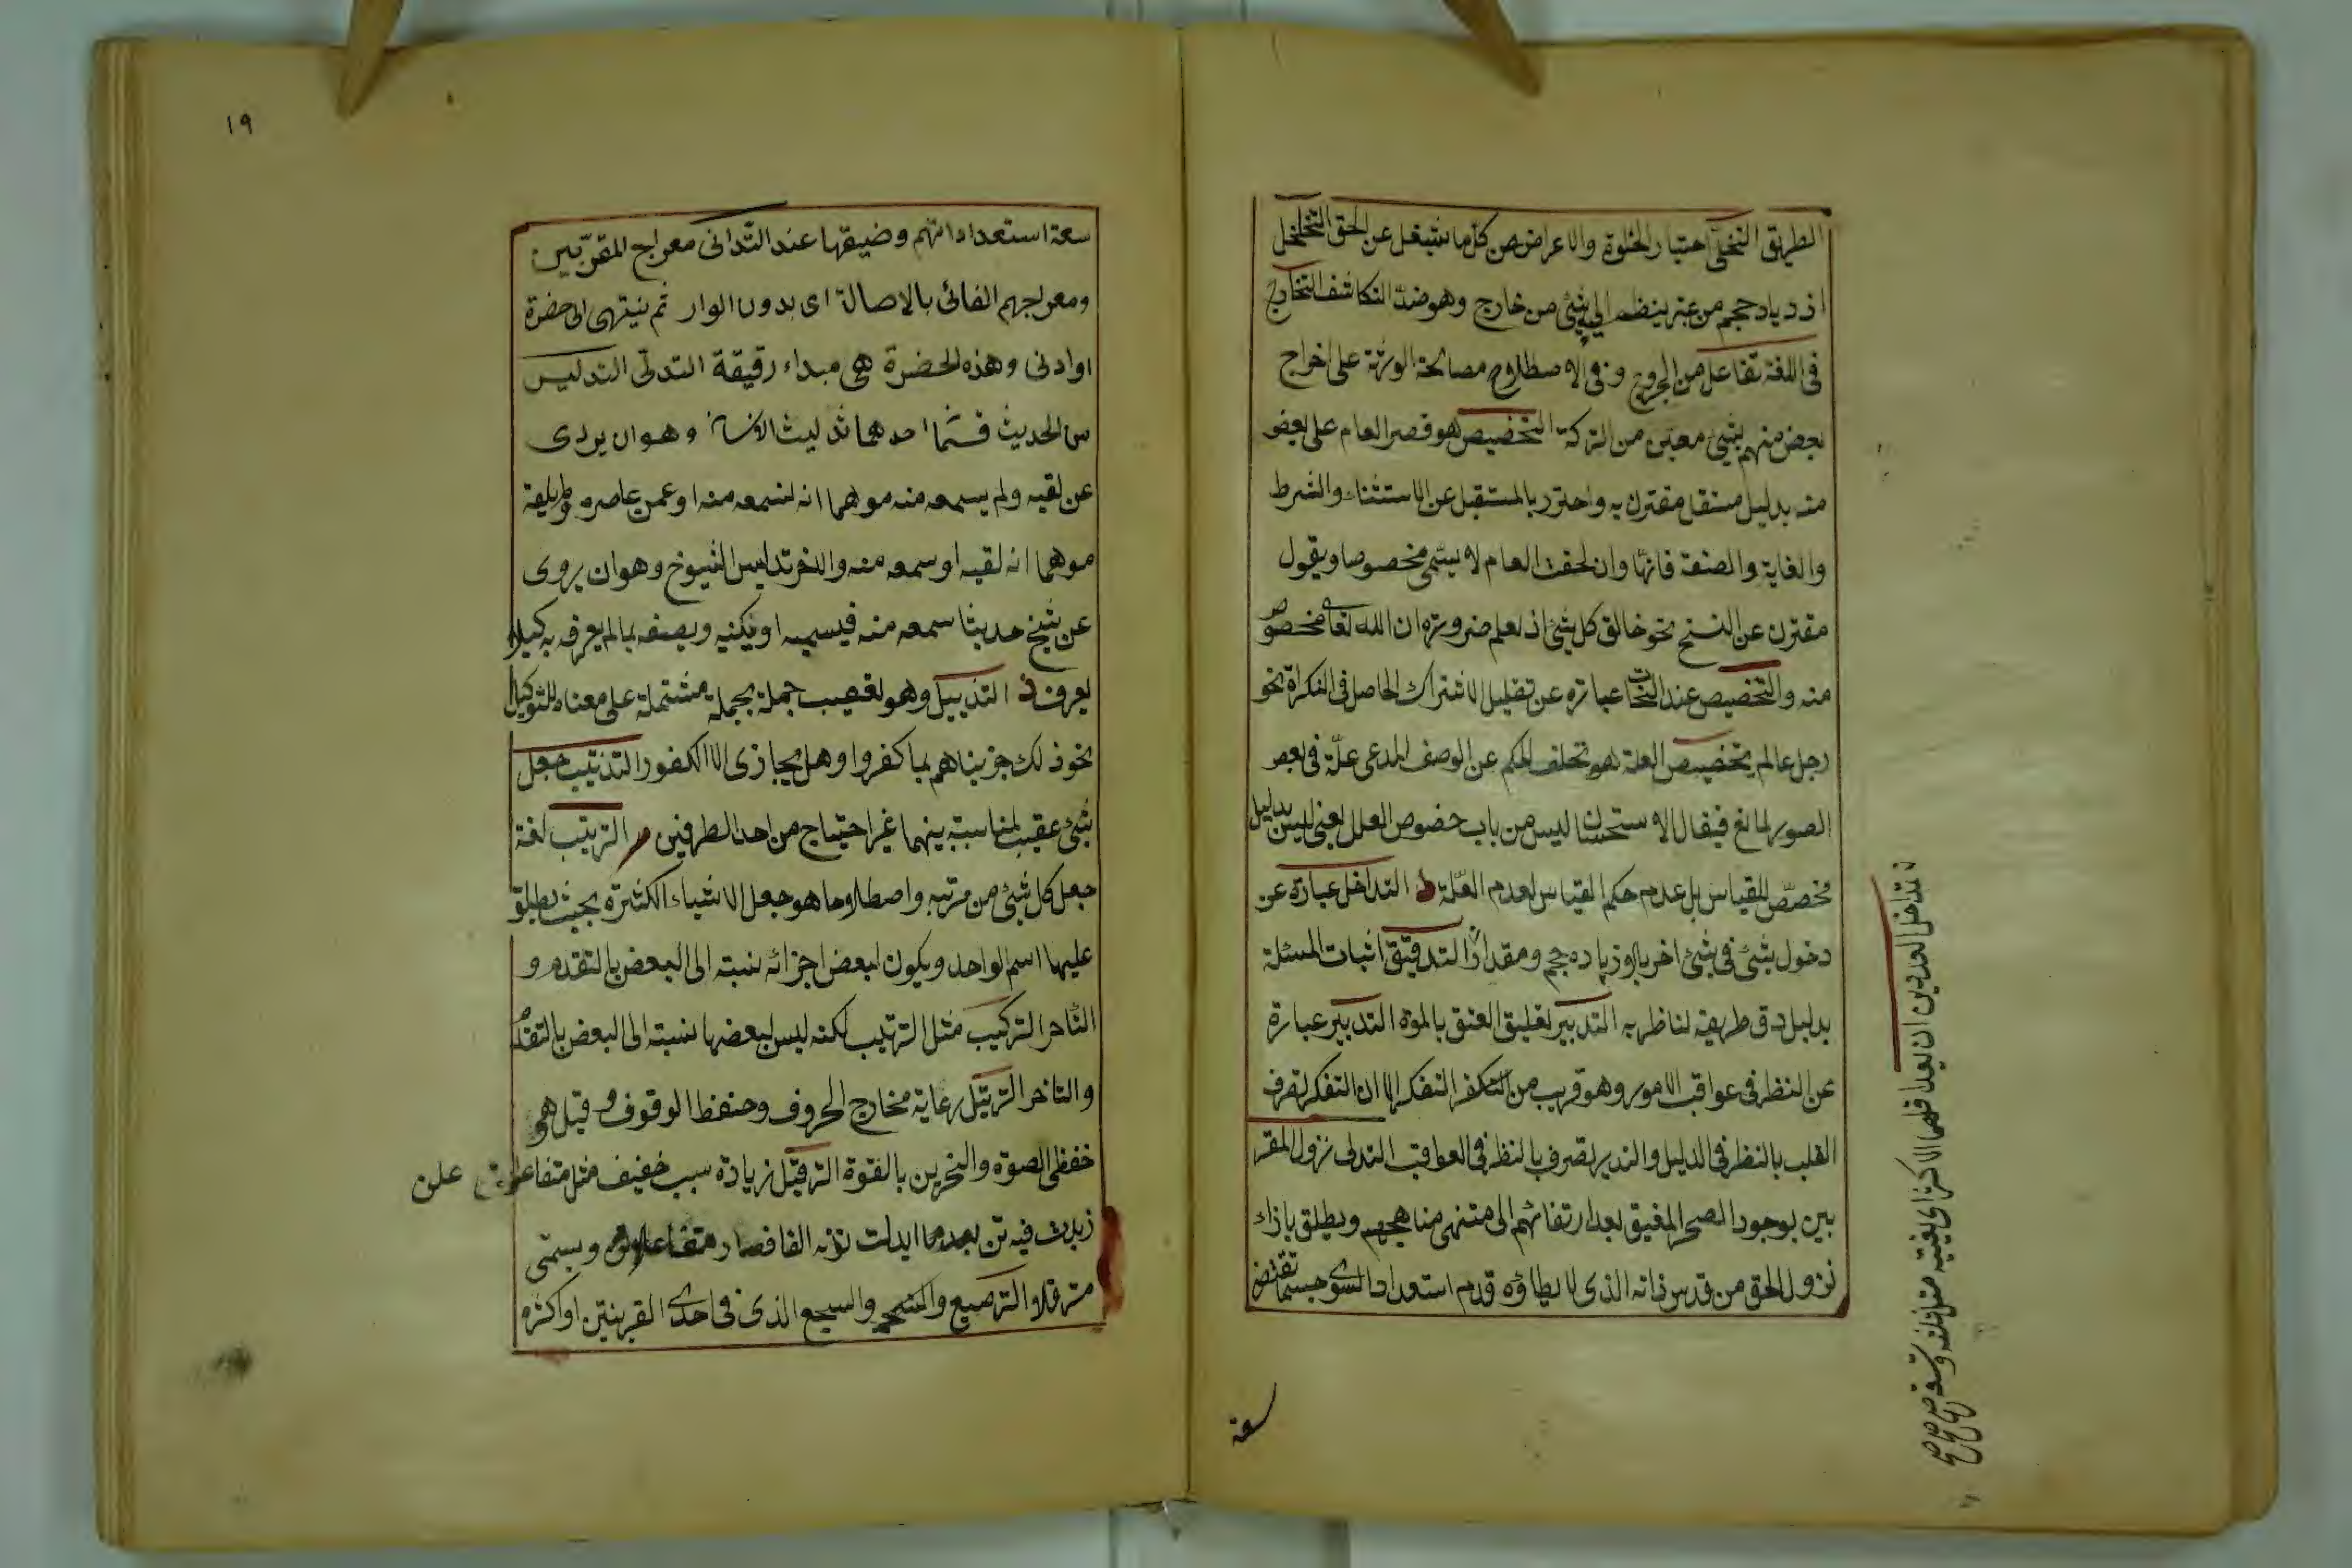 الطريق التخلي اختيار الخلوة والاعراض من كل ما يشغل عن الحق التخلخل
ازدياد حجم من غير ينظم اليه شئ من خارج وهو ضد التكاثف التخارج
فى اللغة تفاعل من الخروج وفى الاصطلاح مصالحة الورثة على اخراج
بعض منهم بشئ معين من التركة التخصيص هو قصر العام على بعض
منه بدليل مستقل مقترن به واحترز بالمستقبل عن الاستثناء والشرط
والغاية والصفة فانها وان لحقت العام لا يسمى مخصوصا ويقول
مقترن عن النسخ نحو خالق كل شئ اذ يعلم ضرورة ان الله تعا مخصوص
منه والتخصيص عند النحات عبارة عن تقليل الاشتراك الحاصل فى النكراة نحو
رجل عالم تخصيص العلة هو تخلف الحكم عن الوصف المدعى علّة فى بعض
الصور لمانع فيقال الاستحسان ليس من باب خصوص العلل يعنى ليس بدليل
مخصّص للقياس بل عدم حكم القياس لعدم العلّة د التداخل عبارة عن
دخول شئ فى شئ اخر بلا زيادة حجم ومقدار التدقيق اثبات المسئلة
بدليل دق طريقه لناظر به التدبير تعليق العتق بالموة التدبير عبارة
عن النظر فى عواقب الامور وهو قريب من التكفر التفكر الا ان التفكر تصرف
القلب بالنظر فى الدليل والتدبر تصرف بالنظر فى العواقب التدلى نزول المقر
بين بوجود الصحر المفيق بعد ارتقائهم الى منتهى مناهجهم ويطلق بازاء
نزول الحق من قدس ذاته الذى لا يطاؤه قدم استعداد السوى حسبما تقتض
سعة
تداخل العددين ان يعد اقلهما الاكثر اى يفنيه مثل ثلثه وتسعه صح صح صح
١٩
سعة استعداداتهم وضيقها عند التدانى معراج المقربين
ومعراجهم الغائى بالاصالة اى بدون الوار ثم ينتهى الى حضرة
او ادنى وهذه الحضرة هى مبداء رقيقة التدلى التدليس
من الحديث قسما احدهما تدليث الاسنا وهو ان يردى
عن لقيه ولم يسمعه منه موهما انه لسمعه منه او عمن عاصره ولم يلقه
موهما انه لقيه او سمعه منه والاخر تدليس الشيوخ وهو ان يروى
عن شيخ حديثا سمعه منه فيسميه او يكنيه ويصفه بما لم يعرف به كيلا
يعرف ذ التذييل وهو تعقيب جملة بجملة مشتملة على معناه للتوكيل
نحو ذلك جزيناهم بما كفروا وهل يجازى الا الكفور التذنيب جعل
شئ عقيب لمناسبة بينهما غير احتياج من احد الطرفين ر الترتيب لغة
جعل كل شئ من مرتبه واصطلاحا هو جعل الاشياء الكثيرة بحيث يطلق
عليها اسم الواحد ويكون لبعض اجزائه نسبته الى البعض بالتقدم و
التأخر التركيب مثل الترتيب لكنه ليس لبعضها نسبته الى البعض بالتقدم
والتاخر الترتيل رعاية مخارج الحروف وحفظ الوقوف وقيل هى
خفظى الصوة والتحزين بالقوة الترفيل زيادة سبب خفيف مثل متفاعلن
علن
زيدت فيه تن بعدما ابدلت نونه الفا فصار متفاعلاتن ويسمى
مترفلا الترصيع والسجع الذى فى احدى القرينتين او اكثره